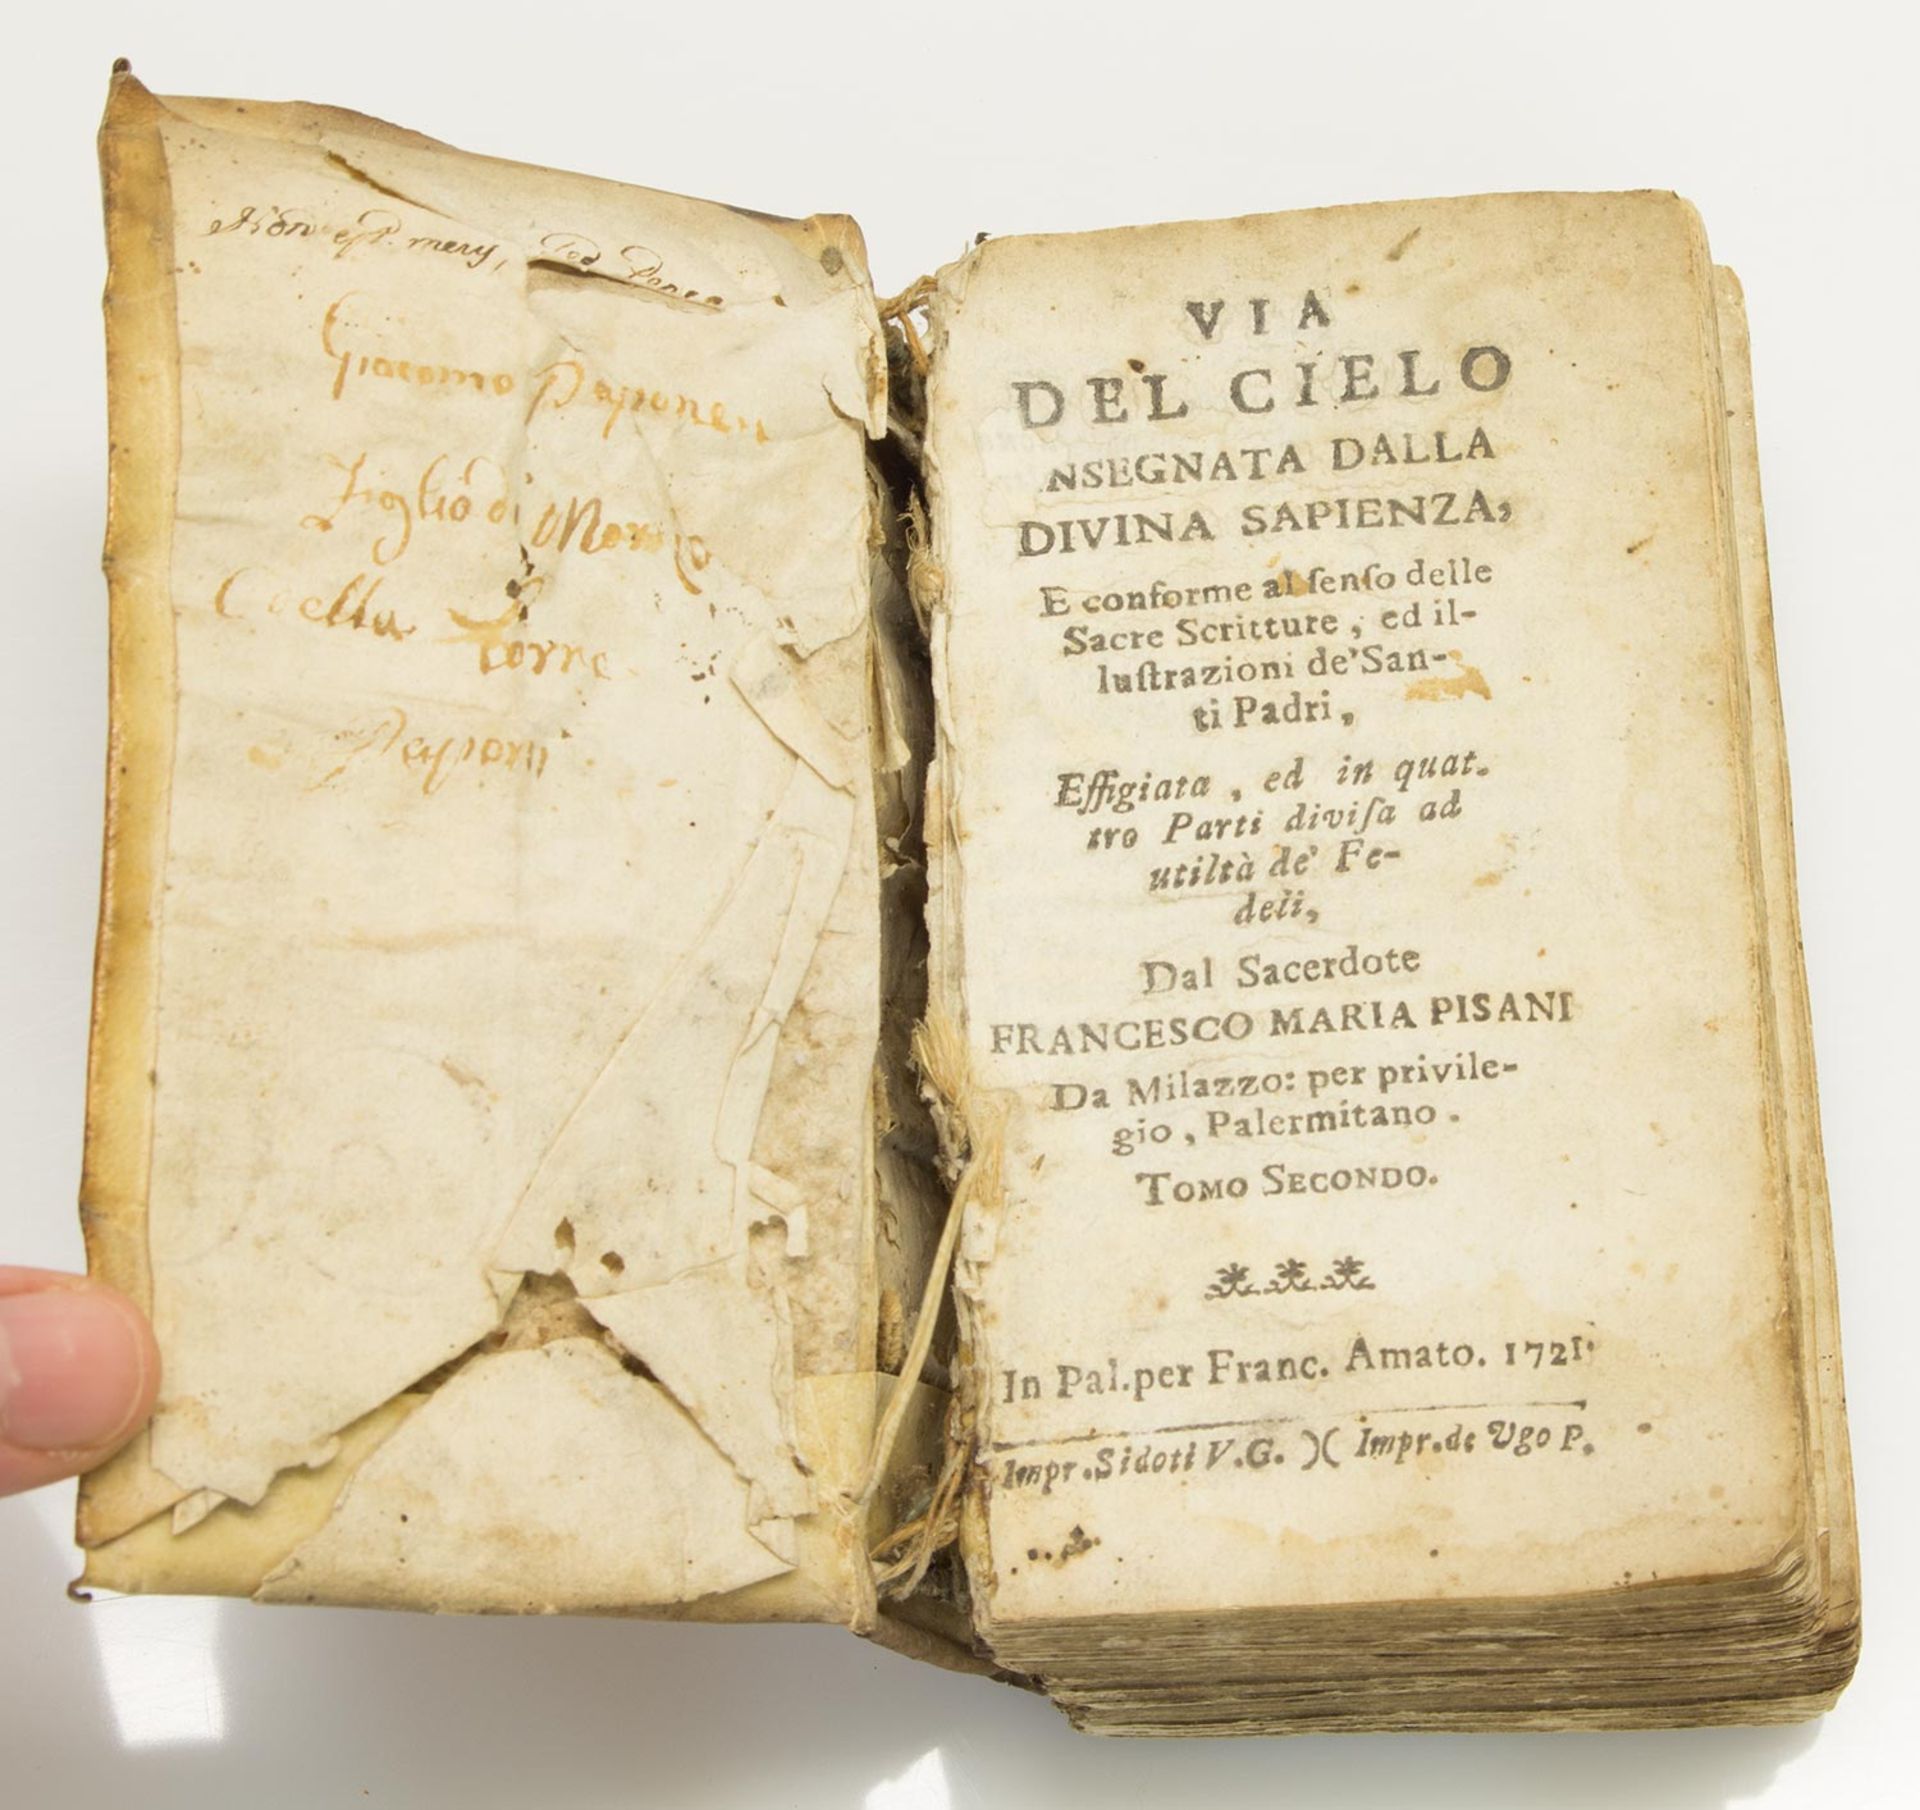 Non est
Giacomo
Figlio di
Torre
VIA
DEL CIELO
NSEGNATA DALLA
DIVINA SAPIENZA,
E conforme al ſenſo delle
Sacre Scritture, ed il-
luſtrazioni de' San-
ti Padri,
Effigiata, ed in quat-
tro Parti diviſa ad
utiltà de' Fe-
deli,
Dal Sacerdote
FRANCESCO MARIA PISANI
Da Milazzo: per privile-
gio, Palermitano.
TOMO SECONDO.
In Pal. per Franc. Amato. 1721.
Impr. Sidoti V.G. )( Impr. de Ugo P.